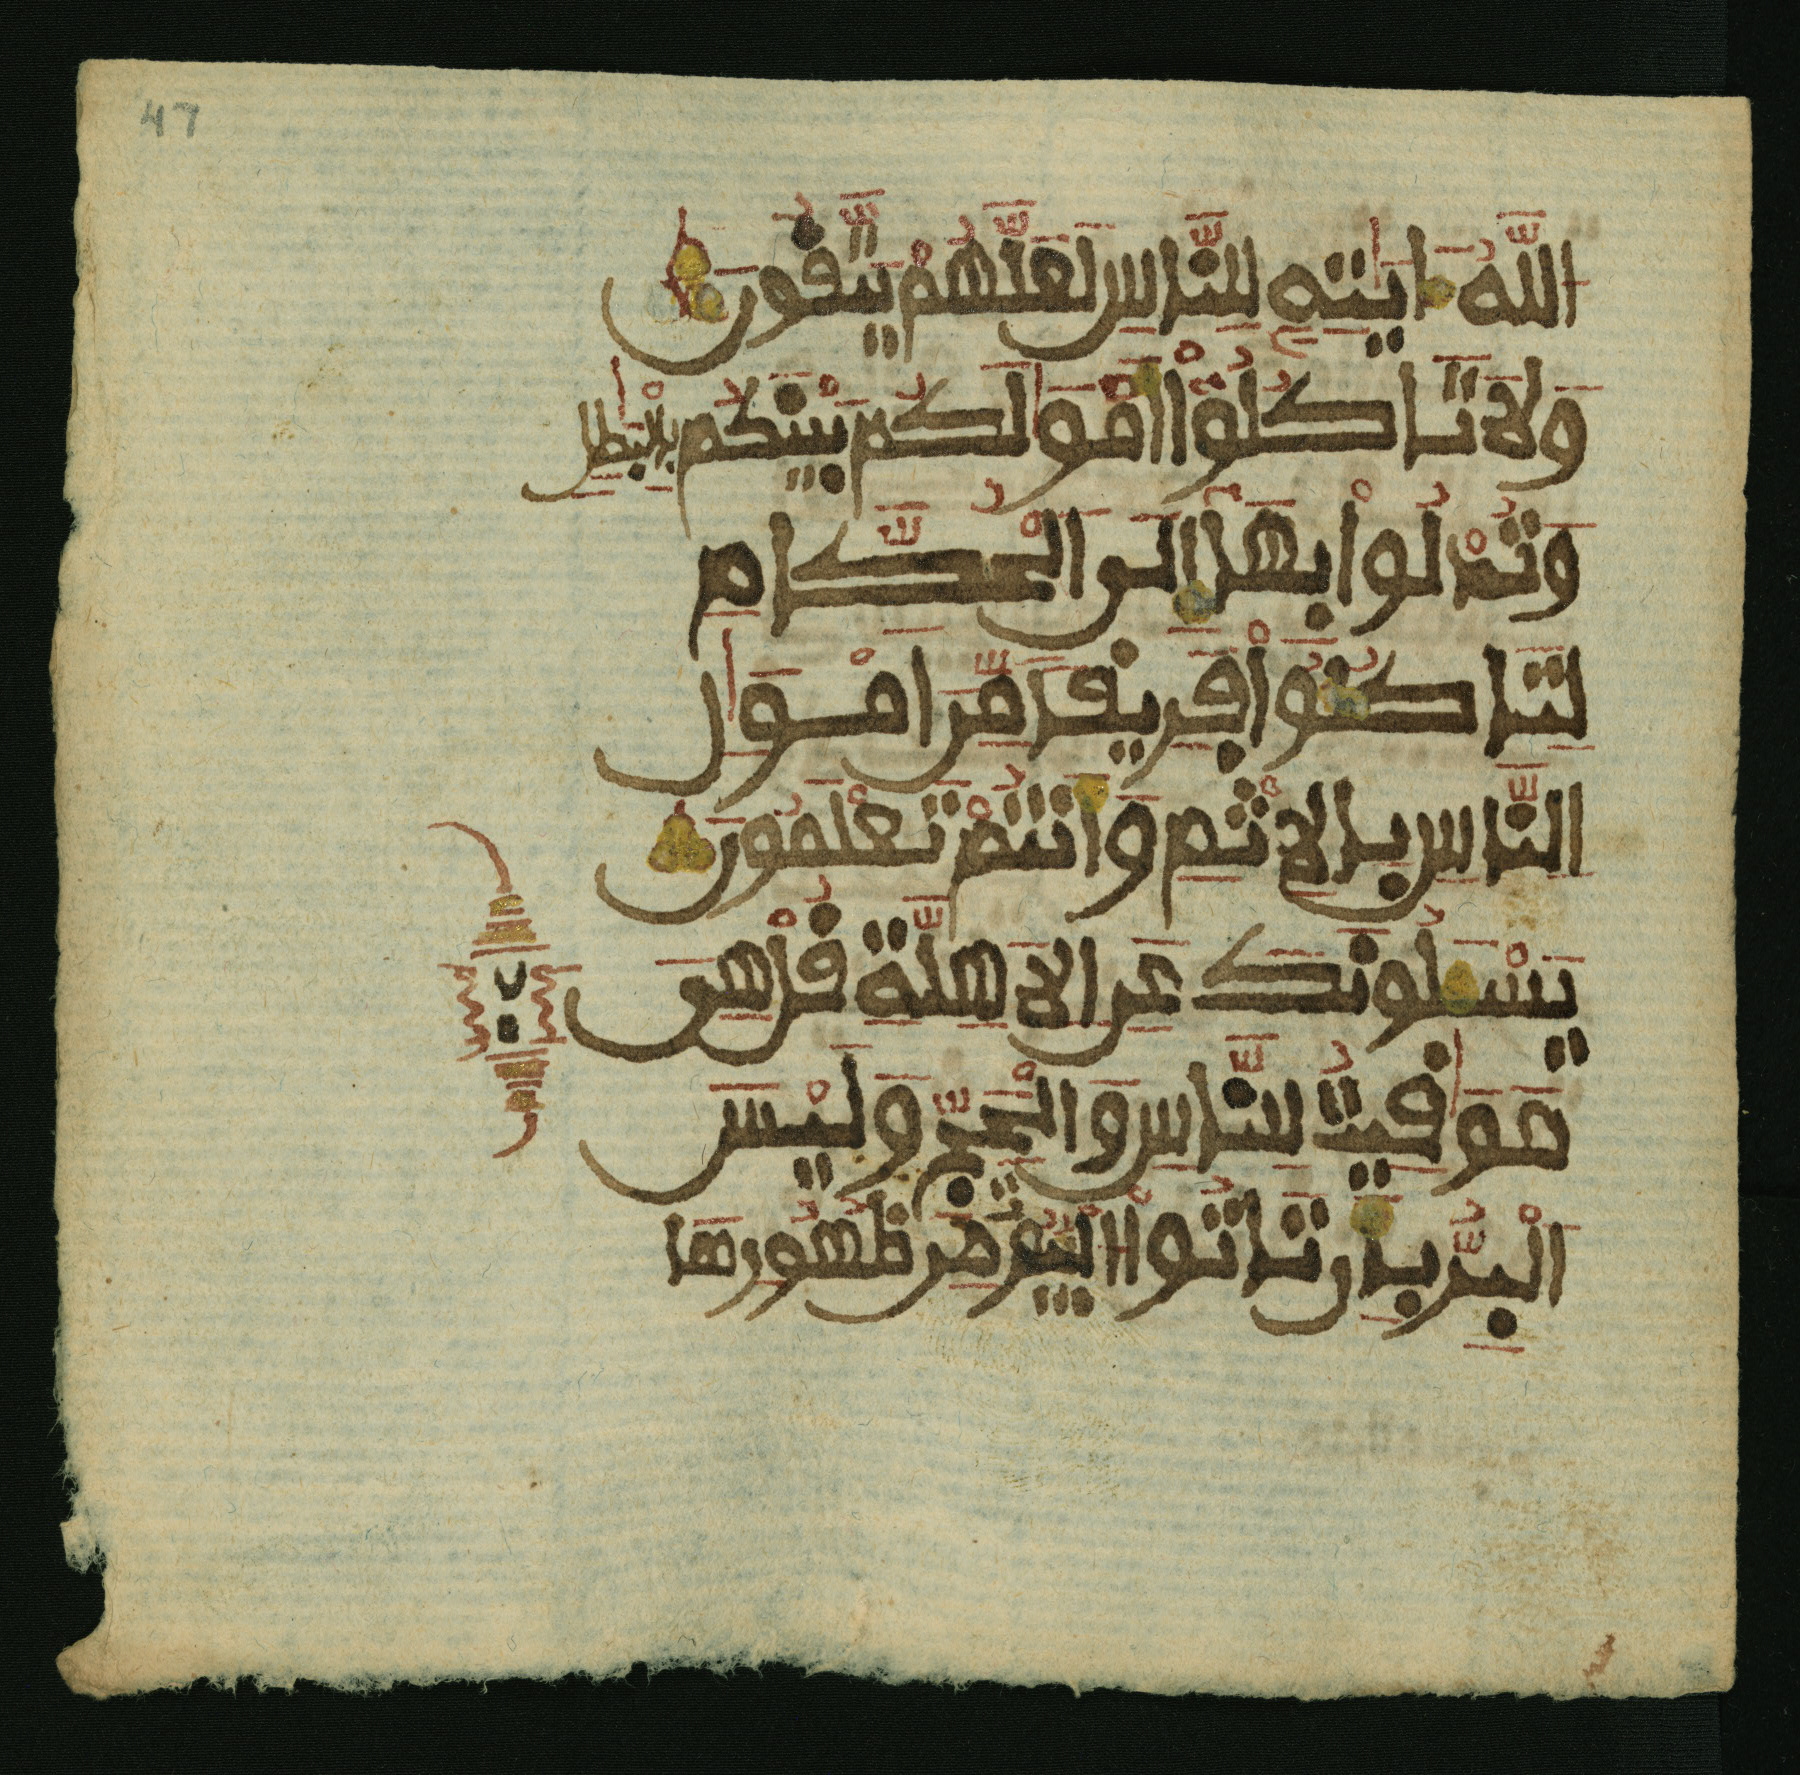 47
اللَّهُ ءَايَٰتِهِ لِلنَّاسِ لَعَلَّهُمْ يَتَّقُونَ
وَلَا تَاكُلُوٓاْ أَمْوَٰلَكُم بَيْنَكُم بِالْبَٰطِلِ
وَتُدْلُواْ بِهَآ إِلَى الْحُكَّامِ
لِتَاكُلُواْ فَرِيقًا مِّنَ امْوَٰلِ
النَّاسِ بِالِاثْمِ وَأَنتُمْ تَعْلَمُونَ
يَسْـَٔلُونَكَ عَنِ الَاهِلَّةِ قُلْ هِىَ
مَوَٰقِيتُ لِلنَّاسِ وَالْحَجِّ وَلَيْسَ
الْبِرُّ بِأَن تَاتُواْ الْبُيُوتَ مِن ظُهُورِهَا